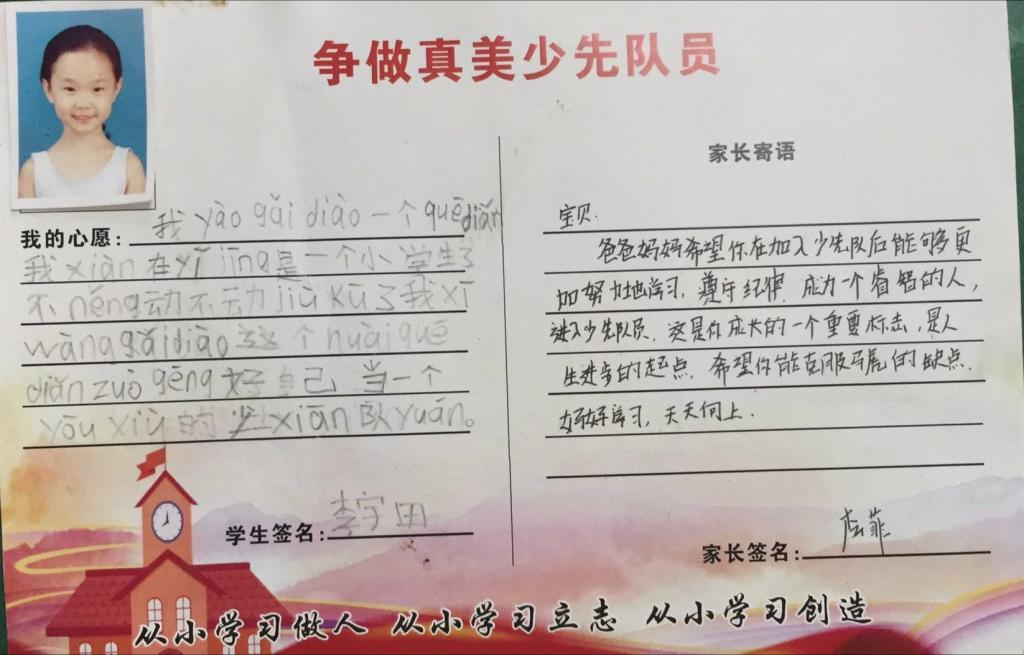 争做真美少先队员
我的心愿：我 yào gǎi diào 一个 quēdiǎn
我 xiàn 在 yǐ jīng 是一个小学生了
不 néng 动不动 jiù kū 了我 xī
wàng gǎi diào 这个 huài quē
diǎn zuò gēng 好自己 当一个
yōu xiù 的少 xiān 队 yuán。
学生签名：李宇田
家长寄语
宝贝：
爸爸妈妈希望你在加入少先队后能够更
加努力地学习，遵守纪律，成为一个睿智的人，
进入少先队员，这是你成长的一个重要标志，是人
生进步的起点，希望你能克服马虎的缺点，
好好学习，天天向上．
家长签名：菲
从小学习做人 从小学习立志 从小学习创造